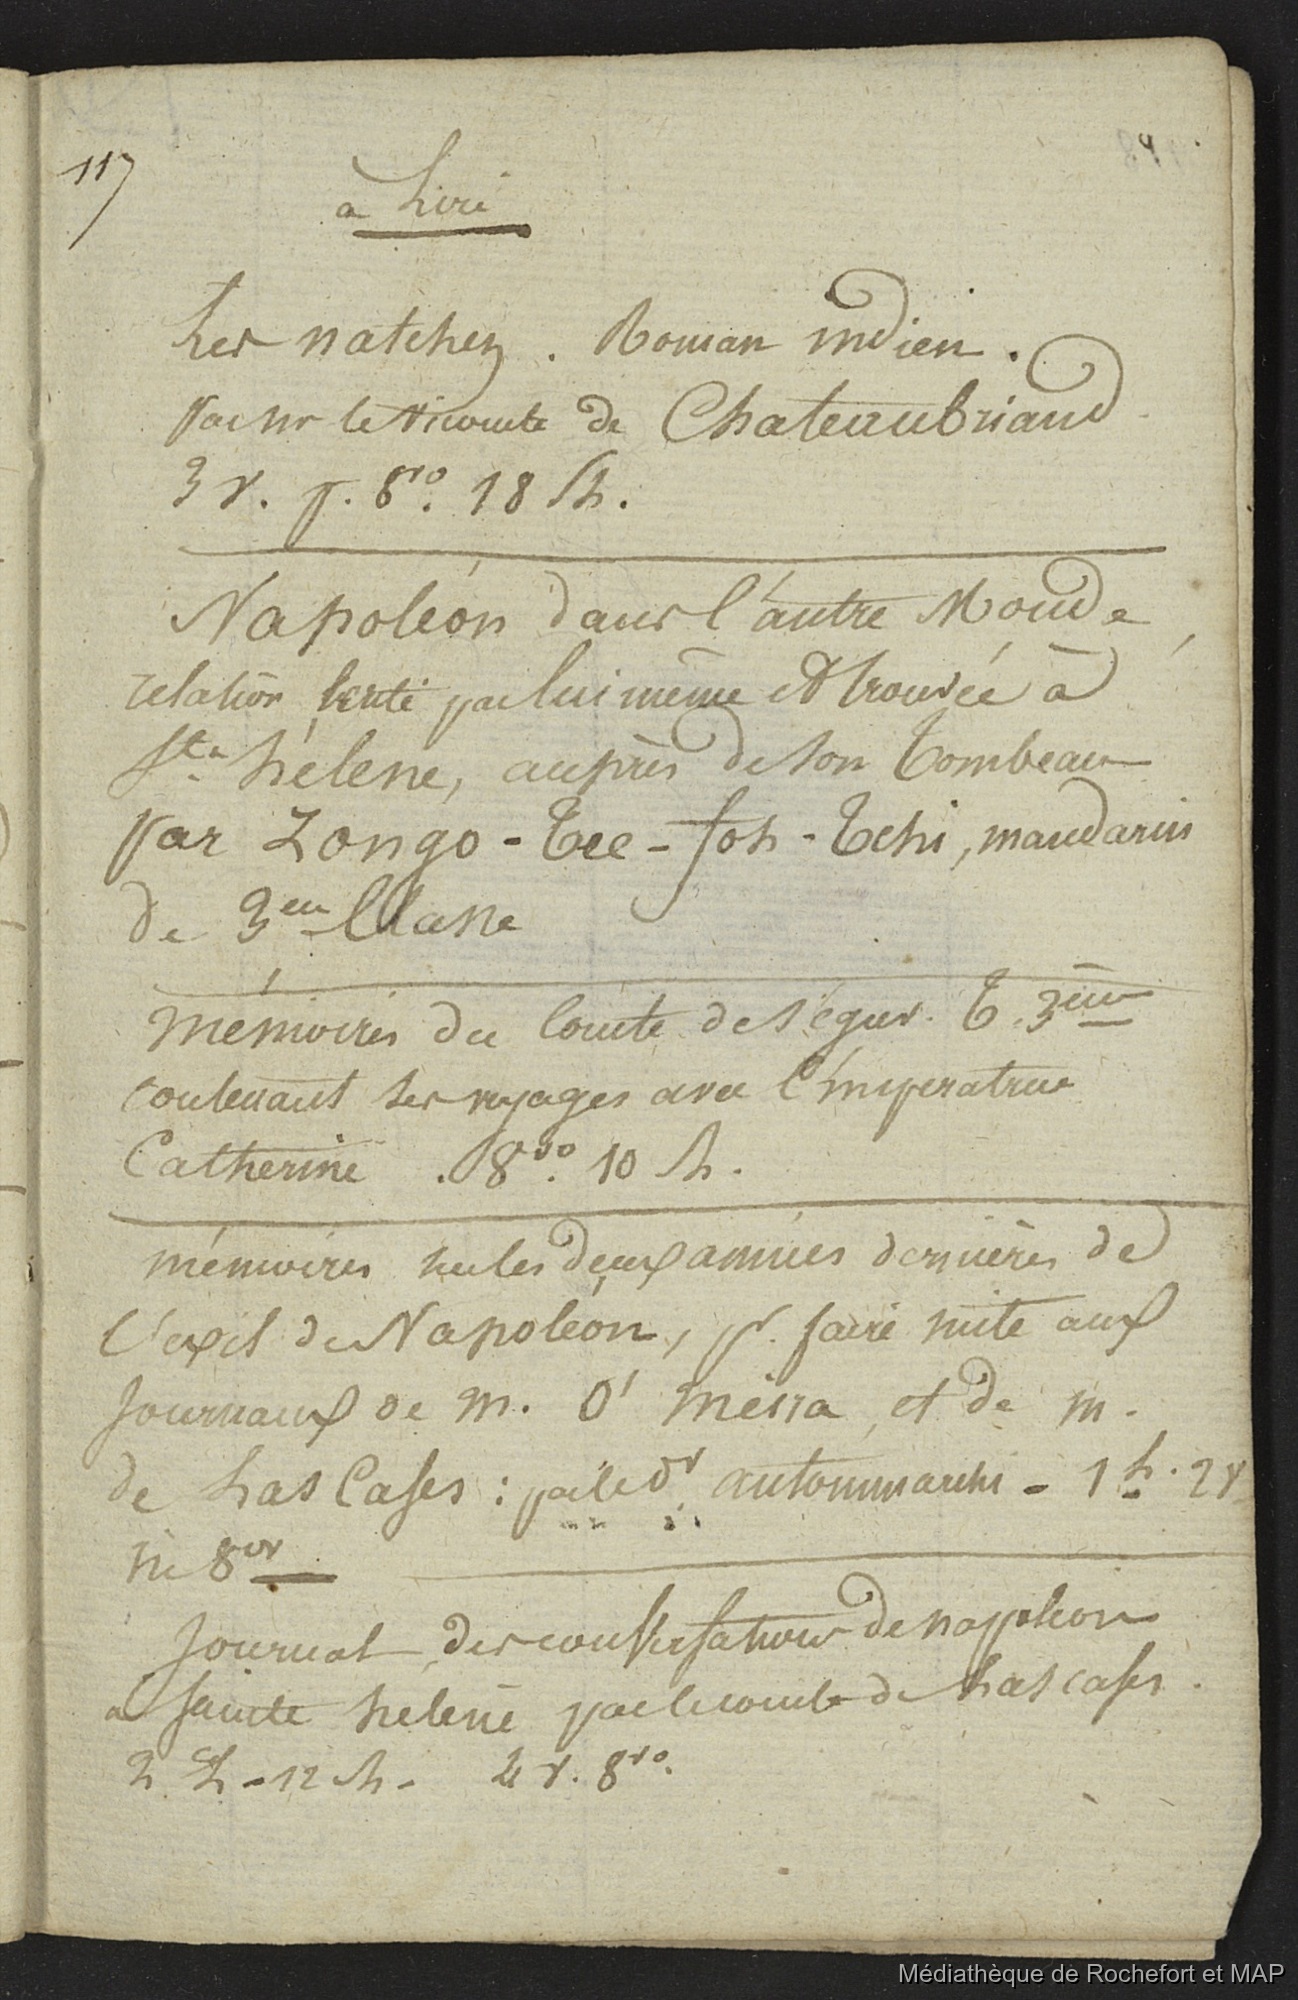 117
a Lire
Les natchez . Roman indien .
par mr le Vicomte de Chateaubriand
3 v. p. 8vo. 18 sh.
Napoléon dans l'autre Monde,
relation écrite par lui même et trouvée à
Ste hélene, auprès de son Tombeau
par Zongo-Tee-foh-Tchi, mandarin
de 3eme Classe
Mémoires du Comte de Ségur. T. 3eme
contenant ses voyages avec l'Impératrice
Catherine . 8vo. 10 sh.
mémoires sur les deux années dernières de
l'exil de Napoléon, pr. faire suite aux
Journaux de m. O' Meara et de m.
de Las Cases : par le dr antommarchi - 1 2 v
in 8vo
Journal des conversations de napoléon
a Sainte helene par le comte de Las cases .
2 - 12 sh - 4 v. 8vo.
Médiathèque de Rochefort et MAP